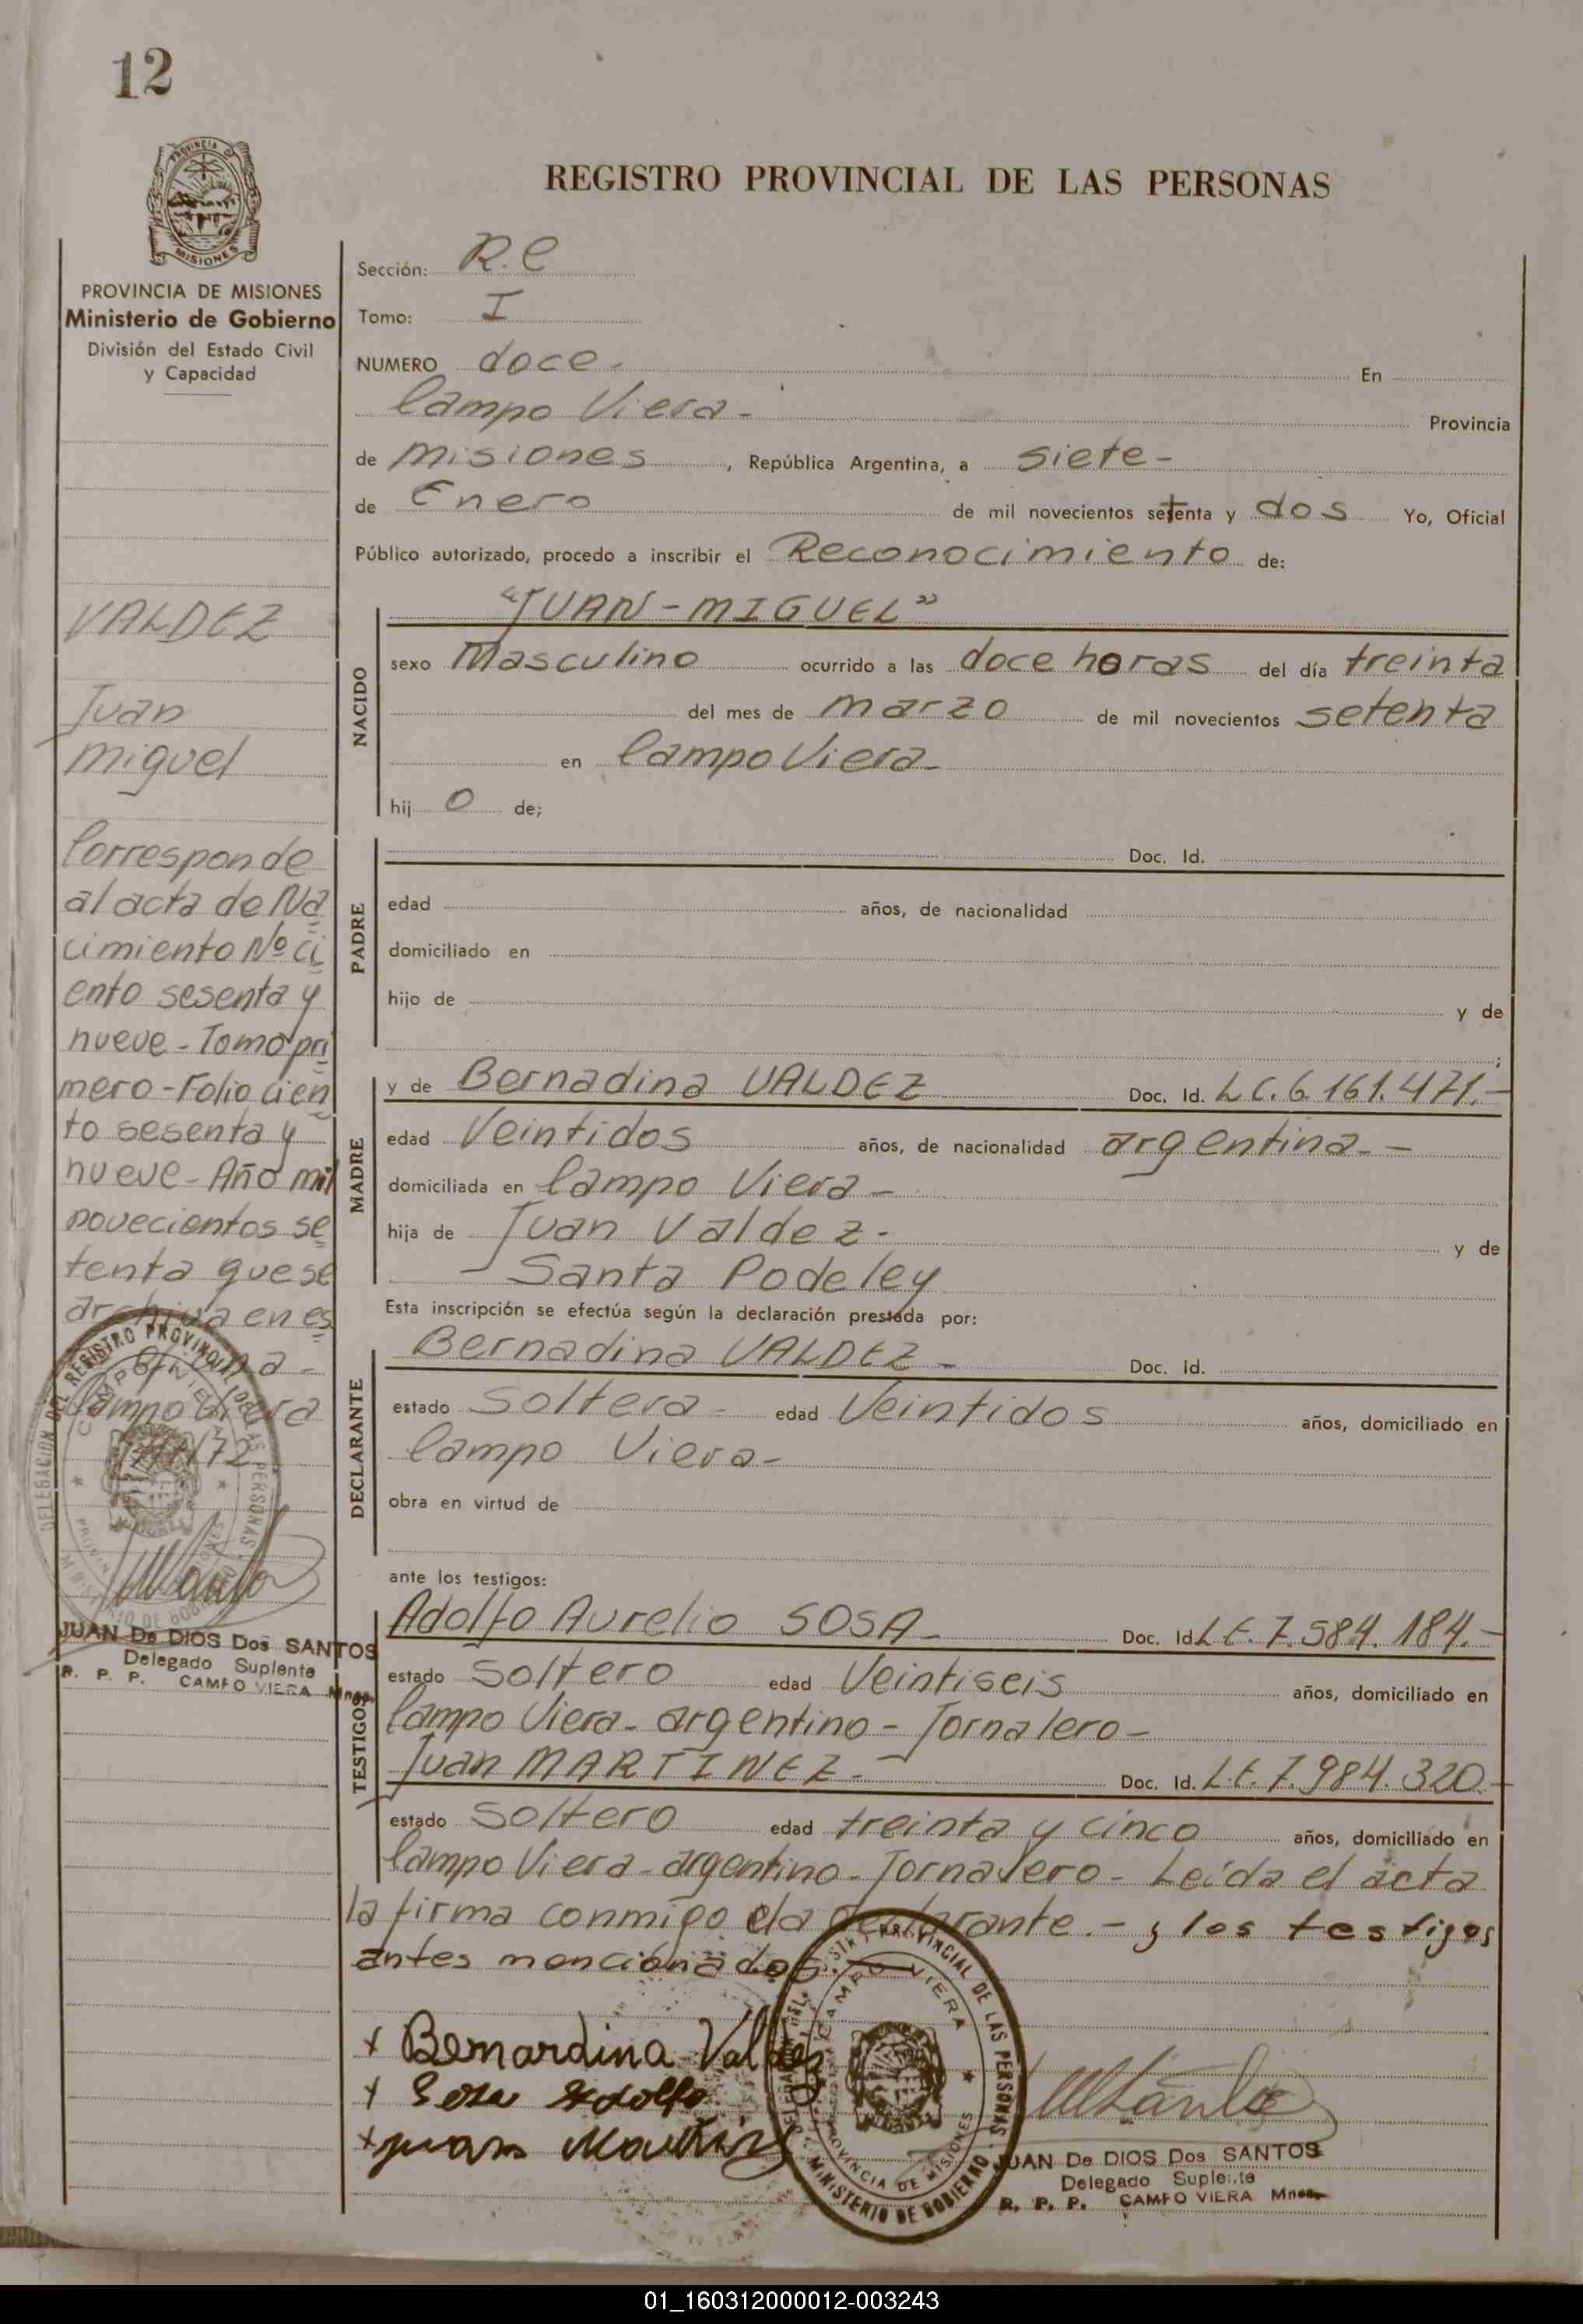 12
PROVINCIA
MISIONES
PROVINCIA DE MISIONES
Ministerio de Gobierno
División del Estado Civil
y Capacidad
VALDEZ
Juan
Miguel
Corresponde
al acta de Na
cimiento Nº ci
ento sesenta y
nueve - Tomo pri
mero - Folio cien
to sesenta y
nueve - Año mil
novecientos se
tenta que se
archiva en es
Campo Viera
JUAN De DIOS Dos SANTOS
Delegado Suplente
R. P. P. CAMPO VIERA Mnes.
REGISTRO PROVINCIAL DE LAS PERSONAS
Sección: R.C
Tomo: I
NUMERO doce. En
Campo Viera -
Provincia
de Misiones, República Argentina, a siete -
de Enero de mil novecientos setenta y dos Yo, Oficial
Público autorizado, procedo a inscribir el Reconocimiento de:
NACIDO
"JUAN - MIGUEL"
sexo Masculino ocurrido a las doce horas del día treinta
del mes de Marzo de mil novecientos setenta
en Campo Viera -
hij o de;
PADRE
Doc. Id.
edad años, de nacionalidad
domiciliado en
hijo de y de
;
MADRE
y de Bernadina VALDEZ Doc. Id. L.C. 6.161.471.-
edad Veintidos años, de nacionalidad argentina.-
domiciliada en Campo Viera -
hija de Juan Valdez - y de
Santa Podeley
Esta inscripción se efectúa según la declaración prestada por:
DECLARANTE
Bernadina VALDEZ - Doc. Id.
estado soltera - edad Veintidos años, domiciliado en
Campo Viera -
obra en virtud de
ante los testigos:
TESTIGOS
Adolfo Aurelio SOSA - Doc. Id. L.E. 7.584.184.-
estado soltero edad Veintiseis años, domiciliado en
Campo Viera - argentino - Jornalero -
Juan MARTINEZ - Doc. Id. L.E. 7.984.320.-
estado soltero edad treinta y cinco años, domiciliado en
Campo Viera - argentino - Jornalero - Leída el acta
la firma conmigo la declarante. - y los testigos
antes mencionados. -
x Bernardina Valdez
x Sosa Adolfo
x juan Martinez
DELEGACION DEL REGISTRO PROVINCIAL DE LAS PERSONAS
CAMPO VIERA
PROVINCIA DE MISIONES
MINISTERIO DE GOBIERNO
JUAN De DIOS Dos SANTOS
Delegado Suplente
R. P. P. CAMPO VIERA Mnes.
01_160312000012-003243